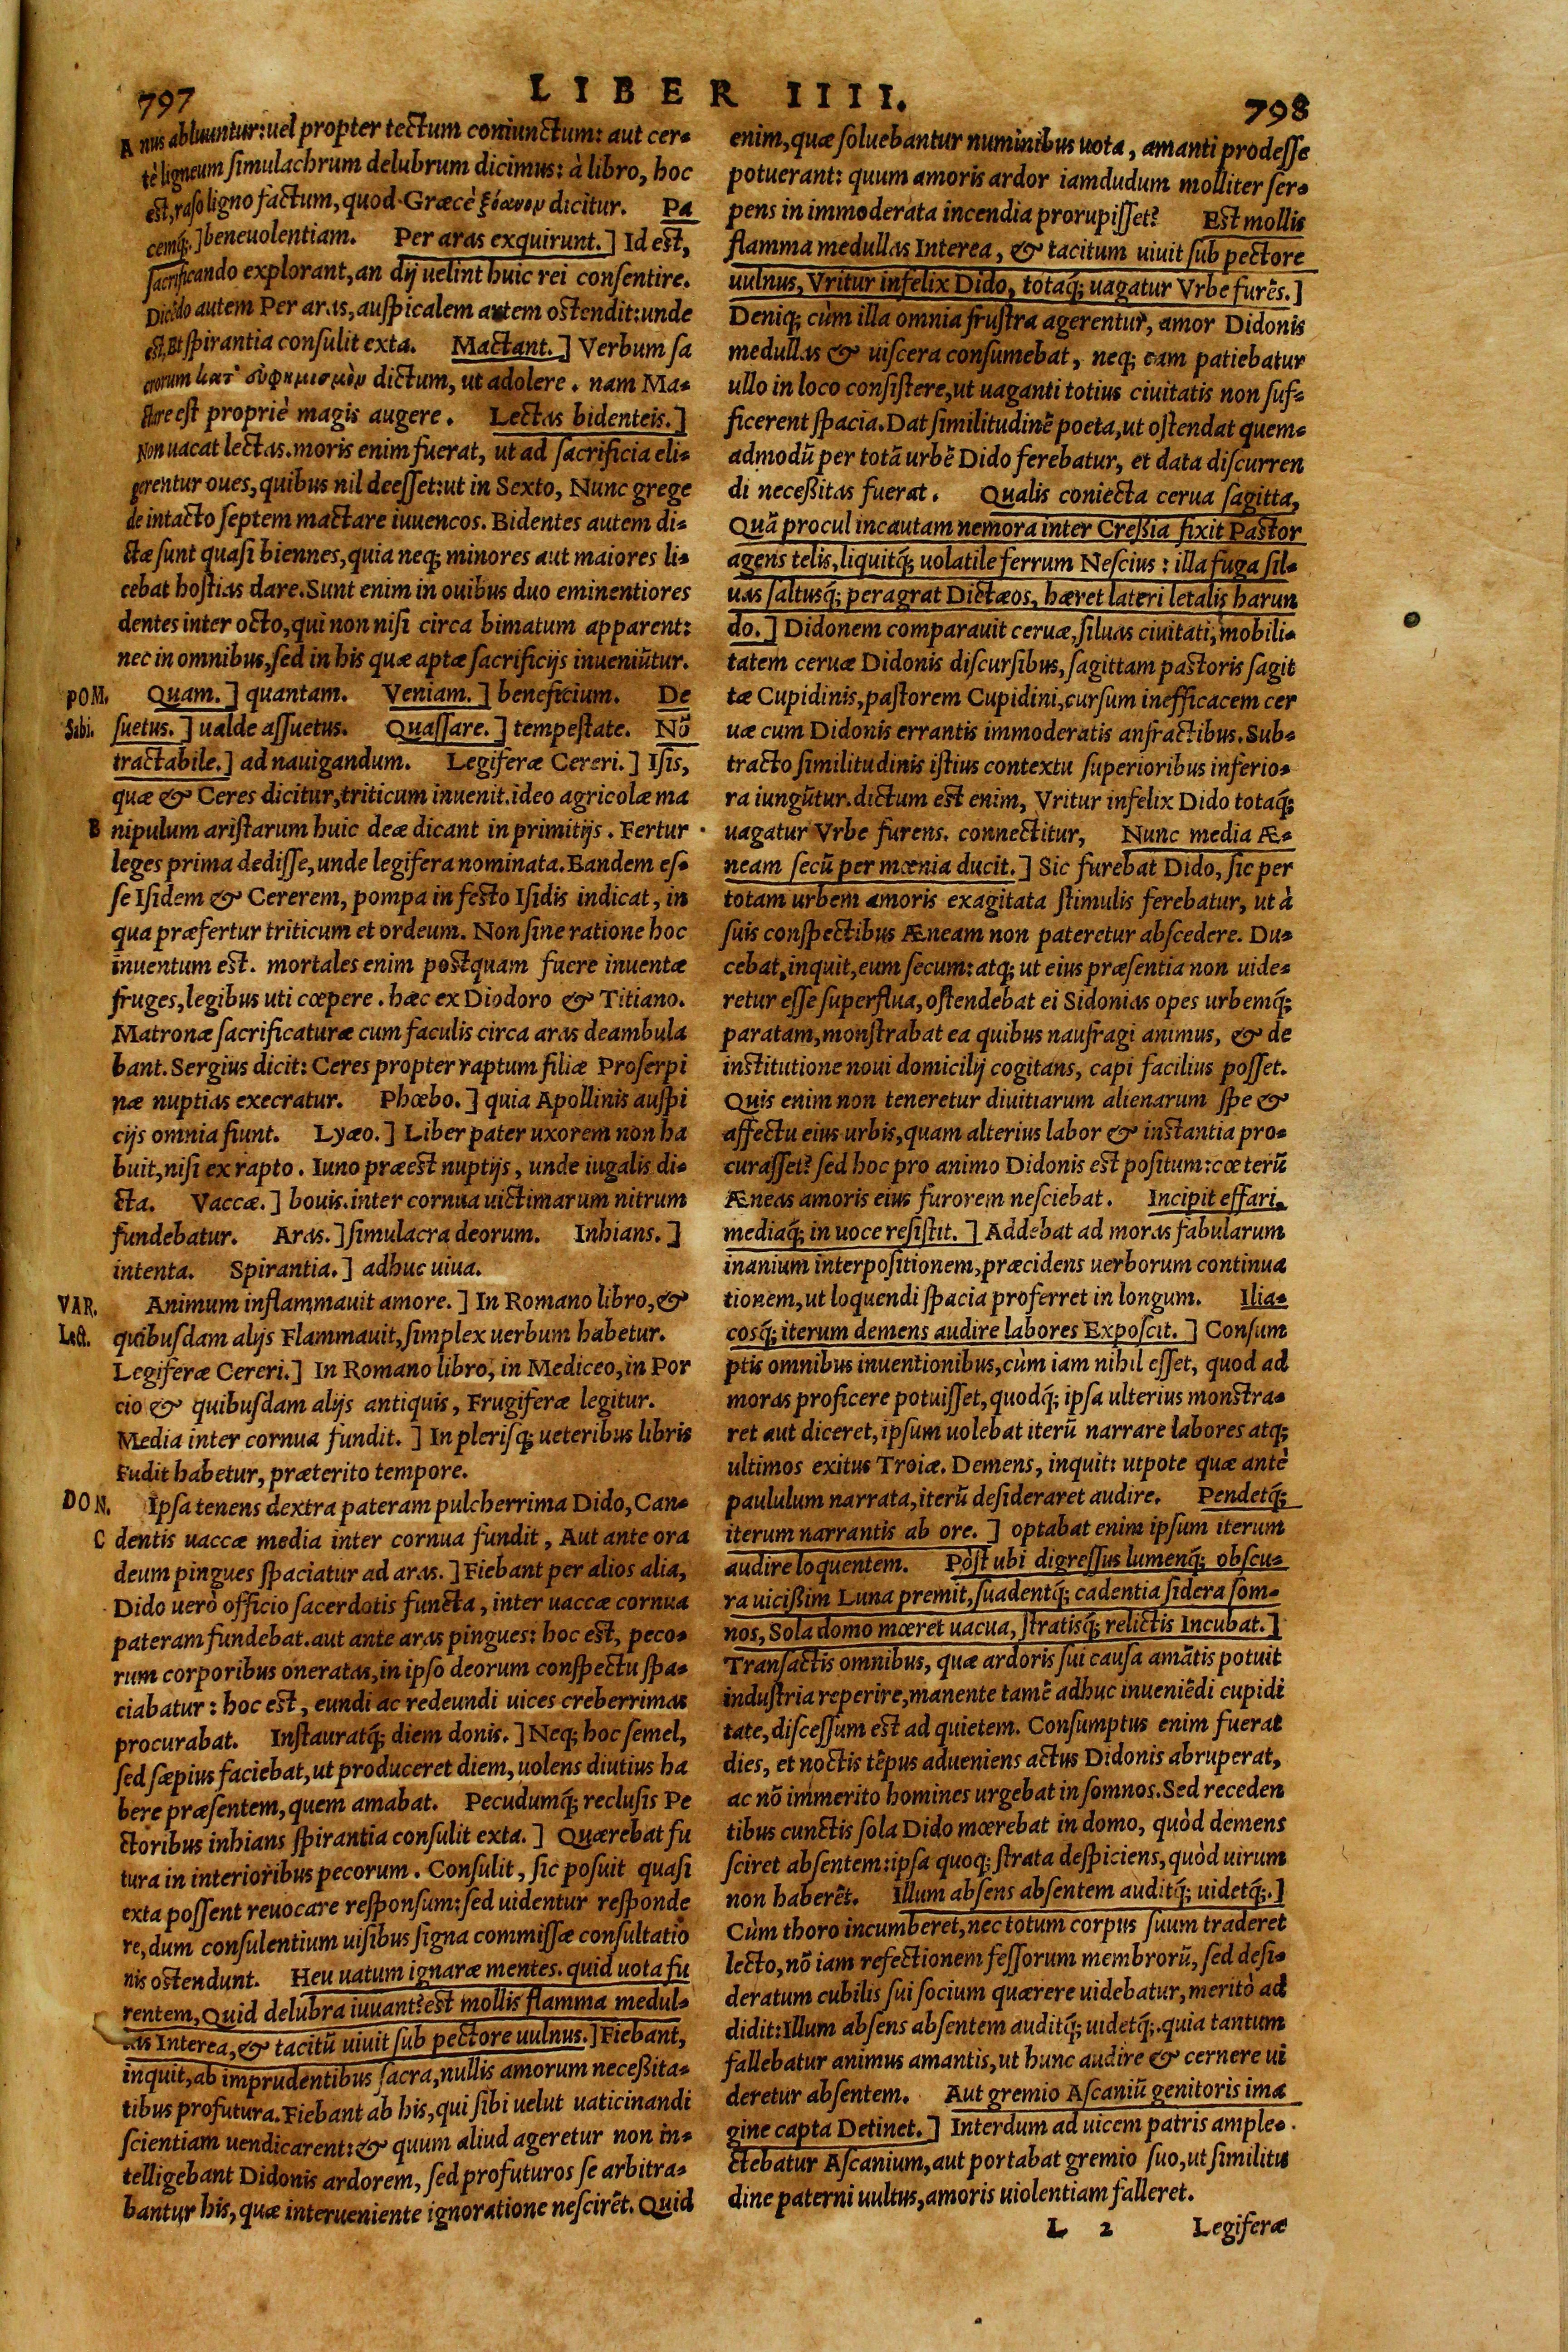 797
LIBER IIII.
798
A nus abluuntur: uel propter tectum coniunctum: aut cer-
tè ligneum simulachrum delubrum dicimus: à libro, hoc
est, raso ligno factum, quod Græcè ξόανον dicitur. Pa
cemq́;.] beneuolentiam. Per aras exquirunt.] Id est,
sacrificando explorant, an dij uelint huic rei consentire.
Dicẽdo autem Per aras, auspicalem artem ostendit: unde
est, Et spirantia consulit exta. Mactant.] Verbum sa
crorum κατ' εὐφημισμὸν dictum, ut adolere. nam Ma-
ctare est propriè magis augere. Lectas bidenteis.]
Non uacat lectas. moris enim fuerat, ut ad sacrificia eli-
gerentur oues, quibus nil deesset: ut in Sexto, Nunc grege
de intacto septem mactare iuuencos. Bidentes autem di-
ctæ sunt quasi biennes, quia neq; minores aut maiores li-
cebat hostias dare. Sunt enim in ouibus duo eminentiores
dentes inter octo, qui non nisi circa bimatum apparent:
nec in omnibus, sed in his quæ aptæ sacrificijs inueniũtur.
POM. Quam.] quantam. Veniam.] beneficium. De
Sabi. suetus.] ualde assuetus. Quassare.] tempestate. Nõ
tractabile.] ad nauigandum. Legiferæ Cereri.] Isis,
quæ & Ceres dicitur, triticum inuenit. ideo agricolæ ma
B nipulum aristarum huic deæ dicant in primitijs. Fertur
leges prima dedisse, unde legifera nominata. Eandem es-
se Isidem & Cererem, pompa in festo Isidis indicat, in
qua præfertur triticum et ordeum. Non sine ratione hoc
inuentum est. mortales enim postquam fuere inuentæ
fruges, legibus uti cœpere. hæc ex Diodoro & Titiano.
Matronæ sacrificaturæ cum faculis circa aras deambula
bant. Sergius dicit: Ceres propter raptum filiæ Proserpi
næ nuptias execratur. Phœbo.] quia Apollinis auspi
cijs omnia fiunt. Lyæo.] Liber pater uxorem non ha
buit, nisi ex rapto. Iuno præest nuptijs, unde iugalis di-
cta. Vaccæ.] bouis. inter cornua uictimarum nitrum
fundebatur. Aras.] simulacra deorum. Inhians.]
intenta. Spirantia.] adhuc uiua.
VAR. Animum inflammauit amore.] In Romano libro, &
Lect. quibusdam alijs Flammauit, simplex uerbum habetur.
Legiferæ Cereri.] In Romano libro, in Mediceo, in Por
cio & quibusdam alijs antiquis, Frugiferæ legitur.
Media inter cornua fundit.] In plerisq; ueteribus libris
Fudit habetur, præterito tempore.
DON. Ipsa tenens dextra pateram pulcherrima Dido, Can-
C dentis uaccæ media inter cornua fundit, Aut ante ora
deum pingues spaciatur ad aras.] Fiebant per alios alia,
Dido uerò officio sacerdotis functa, inter uaccæ cornua
pateram fundebat. aut ante aras pingues: hoc est, peco-
rum corporibus oneratas, in ipso deorum conspectu spa-
ciabatur: hoc est, eundi ac redeundi uices creberrimas
procurabat. Instauratq́; diem donis.] Neq; hoc semel,
sed sæpius faciebat, ut produceret diem, uolens diutius ha
bere præsentem, quem amabat. Pecudumq́; reclusis Pe
ctoribus inhians spirantia consulit exta.] Quærebat fu
tura in interioribus pecorum. Consulit, sic posuit quasi
exta possent reuocare responsum: sed uidentur responde
re, dum consulentium uisibus signa commissæ consultatio
nis ostendunt. Heu uatum ignaræ mentes. quid uota fu
rentem, Quid delubra iuuant? est mollis flamma medul-
las Interea, & tacitũ uiuit sub pectore uulnus.] Fiebant,
inquit, ab imprudentibus sacra, nullis amorum necessita-
tibus profutura. Fiebant ab his, qui sibi uelut uaticinandi
scientiam uendicarent: & quum aliud ageretur non in-
telligebant Didonis ardorem, sed profuturos se arbitra-
bantur his, quæ interueniente ignoratione nescirẽt. Quid
enim, quæ soluebantur numinibus uota, amanti prodesse
potuerant: quum amoris ardor iamdudum molliter ser-
pens in immoderata incendia prorupisset? Est mollis
flamma medullas Interea, & tacitum uiuit sub pectore
uulnus, Vritur infelix Dido, totaq́; uagatur Vrbe furẽs.]
Deniq; cùm illa omnia frustra agerentur, amor Didonis
medullas & uiscera consumebat, neq; eam patiebatur
ullo in loco consistere, ut uaganti totius ciuitatis non suf-
ficerent spacia. Dat similitudinẽ poeta, ut ostendat quem-
admodũ per totã urbẽ Dido ferebatur, et data discurren
di necessitas fuerat. Qualis coniecta cerua sagitta,
Quã procul incautam nemora inter Cressia fixit Pastor
agens telis, liquitq́; uolatile ferrum Nescius: illa fuga sil-
uas saltusq́; peragrat Dictæos, hæret lateri letalis harun
do.] Didonem comparauit ceruæ, siluas ciuitati, mobili-
tatem ceruæ Didonis discursibus, sagittam pastoris sagit
tæ Cupidinis, pastorem Cupidini, cursum inefficacem cer
uæ cum Didonis errantis immoderatis anfractibus. Sub-
tracto similitudinis istius contextu superioribus inferio-
ra iungũtur. dictum est enim, Vritur infelix Dido totaq́;
uagatur Vrbe furens. connectitur, Nunc media Æ-
neam secũ per mœnia ducit.] Sic furebat Dido, sic per
totam urbem amoris exagitata stimulis ferebatur, ut à
suis conspectibus Æneam non pateretur abscedere. Du-
cebat, inquit, eum secum: atq; ut eius præsentia non uide-
retur esse superflua, ostendebat ei Sidonias opes urbemq́;
paratam, monstrabat ea quibus naufragi animus, & de
institutione noui domicilij cogitans, capi facilius posset.
Quis enim non teneretur diuitiarum alienarum spe &
affectu eius urbis, quam alterius labor & instantia pro-
curasset? sed hoc pro animo Didonis est positum: cœterũ
Æneas amoris eius furorem nesciebat. Incipit effari,
mediaq́; in uoce resistit.] Addebat ad moras fabularum
inanium interpositionem, præcidens uerborum continua
tionem, ut loquendi spacia proferret in longum. Ilia-
cosq́; iterum demens audire labores Exposcit.] Consum
ptis omnibus inuentionibus, cùm iam nihil esset, quod ad
moras proficere potuisset, quodq́; ipsa ulterius monstra-
ret aut diceret, ipsum uolebat iterũ narrare labores atq;
ultimos exitus Troiæ. Demens, inquit: utpote quæ antè
paululum narrata, iterũ desideraret audire. Pendetq́;
iterum narrantis ab ore.] optabat enim ipsum iterum
audire loquentem. Pòst ubi digressus lumenq́; obscu-
ra uicissim Luna premit, suadentq́; cadentia sidera som-
nos, Sola domo mœret uacua, stratisq́; relictis Incubat.]
Transactis omnibus, quæ ardoris sui causa amãtis potuit
industria reperire, manente tamẽ adhuc inueniẽdi cupidi
tate, discessum est ad quietem. Consumptus enim fuerat
dies, et noctis tẽpus adueniens actus Didonis abruperat,
ac nõ immerito homines urgebat in somnos. Sed receden
tibus cunctis sola Dido mœrebat in domo, quòd demens
sciret absentem: ipsa quoq; strata despiciens, quòd uirum
non haberẽt. Illum absens absentem auditq́; uidetq́;.]
Cùm thoro incumberet, nec totum corpus suum traderet
lecto, nõ iam refectionem fessorum membrorũ, sed desi-
deratum cubilis sui socium quærere uidebatur, meritò ad
didit: Illum absens absentem auditq́; uidetq́;. quia tantum
fallebatur animus amantis, ut hunc audire & cernere ui
deretur absentem. Aut gremio Ascaniũ genitoris ima
gine capta Detinet.] Interdum ad uicem patris ample-
ctebatur Ascanium, aut portabat gremio suo, ut similitu
dine paterni uultus, amoris uiolentiam falleret.
L 2 Legiferæ